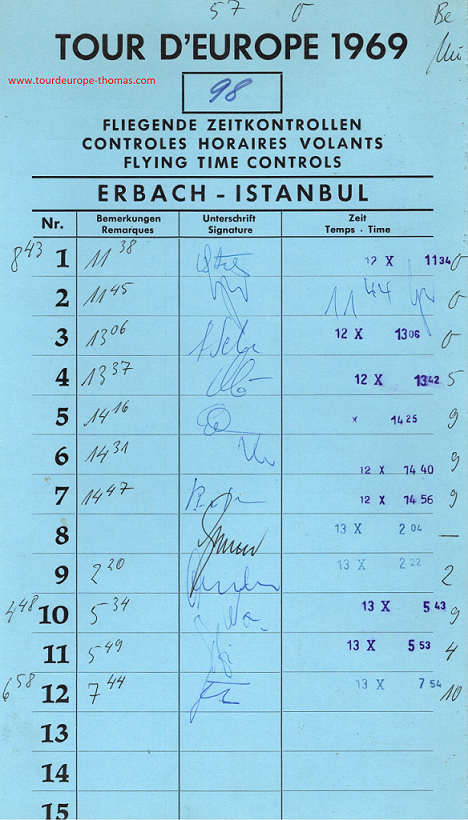 57 0 Be
TOUR D'EUROPE 1969
www.tourdeurope-thomas.com
98
FLIEGENDE ZEITKONTROLLEN
CONTROLES HORAIRES VOLANTS
FLYING TIME CONTROLS
ERBACH - ISTANBUL
Nr. Bemerkungen Remarques Unterschrift Signature Zeit Temps · Time
8 43 1 11 38 12 X 11 34 0
2 11 45 11 44 0
3 13 06 12 X 13 06 0
4 13 37 12 X 13 42 5
5 14 16 X 14 25 9
6 14 31 12 X 14 40 9
7 14 47 12 X 14 56 9
8 13 X 2 04 —
9 2 20 13 X 2 22 2
4 48 10 5 34 13 X 5 43 9
11 5 49 13 X 5 53 4
6 58 12 7 44 13 X 7 54 10
13
14
15